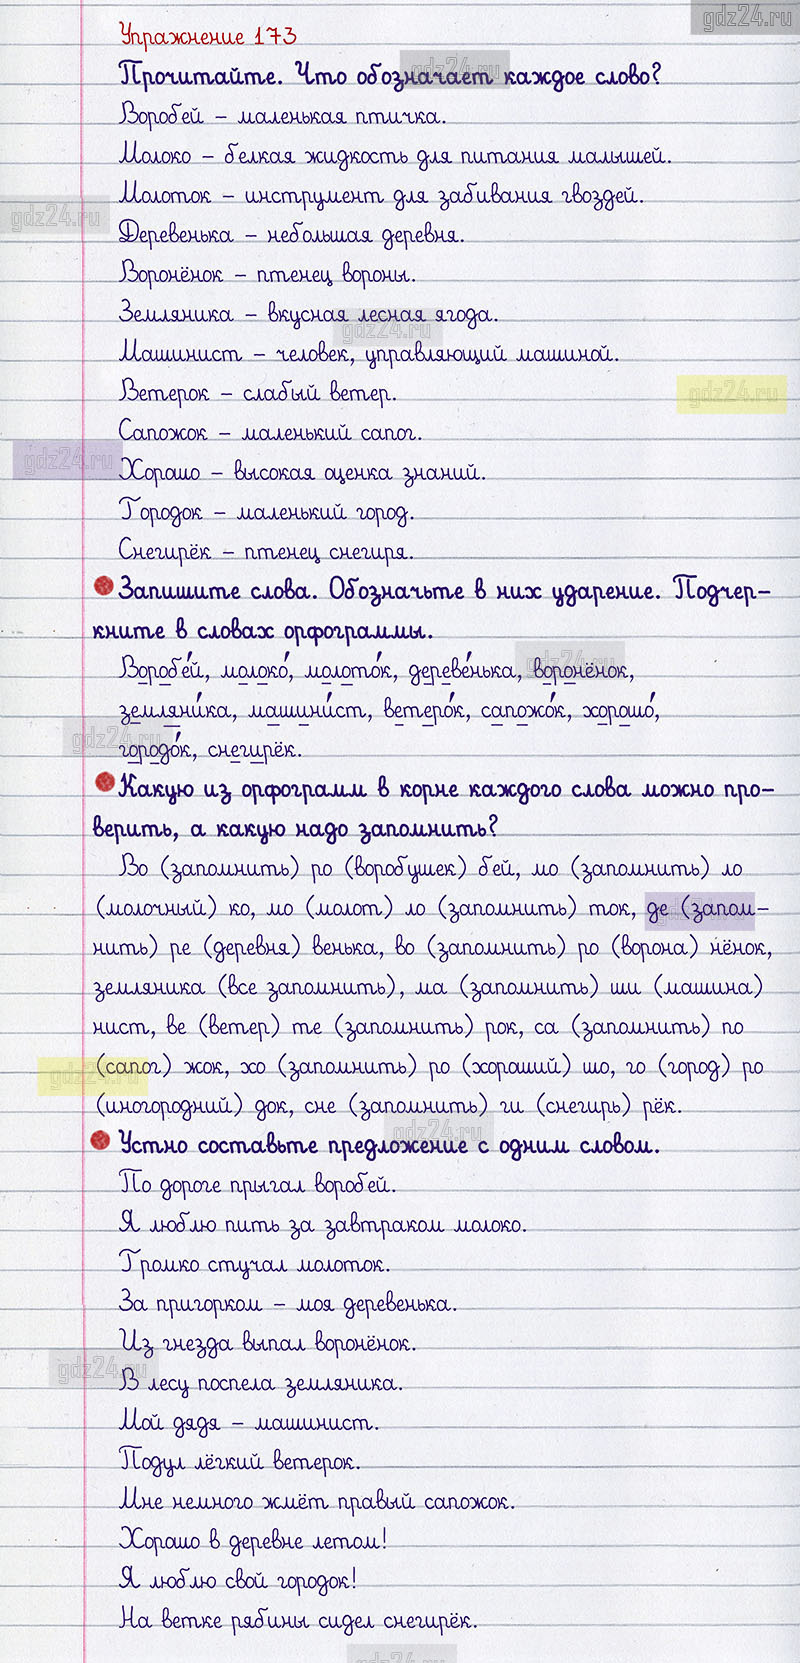 gdz24.ru
Упражнение 173
Прочитайте. Что обозначает каждое слово?
gdz24.ru
Воробей – маленькая птичка.
Молоко – белкая жидкость для питания малышей.
Молоток – инструмент для забивания гвоздей.
gdz24.ru
Деревенька – небольшая деревня.
Воронёнок – птенец вороны.
Земляника – вкусная лесная ягода.
gdz24.ru
Машинист – человек, управляющий машиной.
Ветерок – слабый ветер.
gdz24.ru
Сапожок – маленький сапог.
gdz24.ru
Хорошо – высокая оценка знаний.
Городок – маленький город.
Снегирёк – птенец снегиря.
Запишите слова. Обозначьте в них ударение. Подчер-
кните в словах орфограммы.
gdz24.ru
Воробе́й, молоко́, молото́к, дереве́нька, воронёнок,
земляни́ка, машини́ст, ветеро́к, сапожо́к, хорошо́,
gdz24.ru
городо́к, снегирёк.
Какую из орфограмм в корне каждого слова можно про-
верить, а какую надо запомнить?
Во (запомнить) ро (воробушек) бей, мо (запомнить) ло
(молочный) ко, мо (молот) ло (запомнить) ток, де (запом-
gdz24.ru
нить) ре (деревня) венька, во (запомнить) ро (ворона) нёнок,
земляника (все запомнить), ма (запомнить) ши (машина)
нист, ве (ветер) те (запомнить) рок, са (запомнить) по
(сапог) жок, хо (запомнить) ро (хороший) шо, го (город) ро
gdz24.ru
(иногородний) док, сне (запомнить) ги (снегирь) рёк.
gdz24.ru
Устно составьте предложение с одним словом.
По дороге прыгал воробей.
Я люблю пить за завтраком молоко.
Громко стучал молоток.
За пригорком – моя деревенька.
Из гнезда выпал воронёнок.
gdz24.ru
В лесу поспела земляника.
Мой дядя – машинист.
Подул лёгкий ветерок.
Мне немного жмёт правый сапожок.
Хорошо в деревне летом!
Я люблю свой городок!
На ветке рябины сидел снегирёк.
gdz24.ru